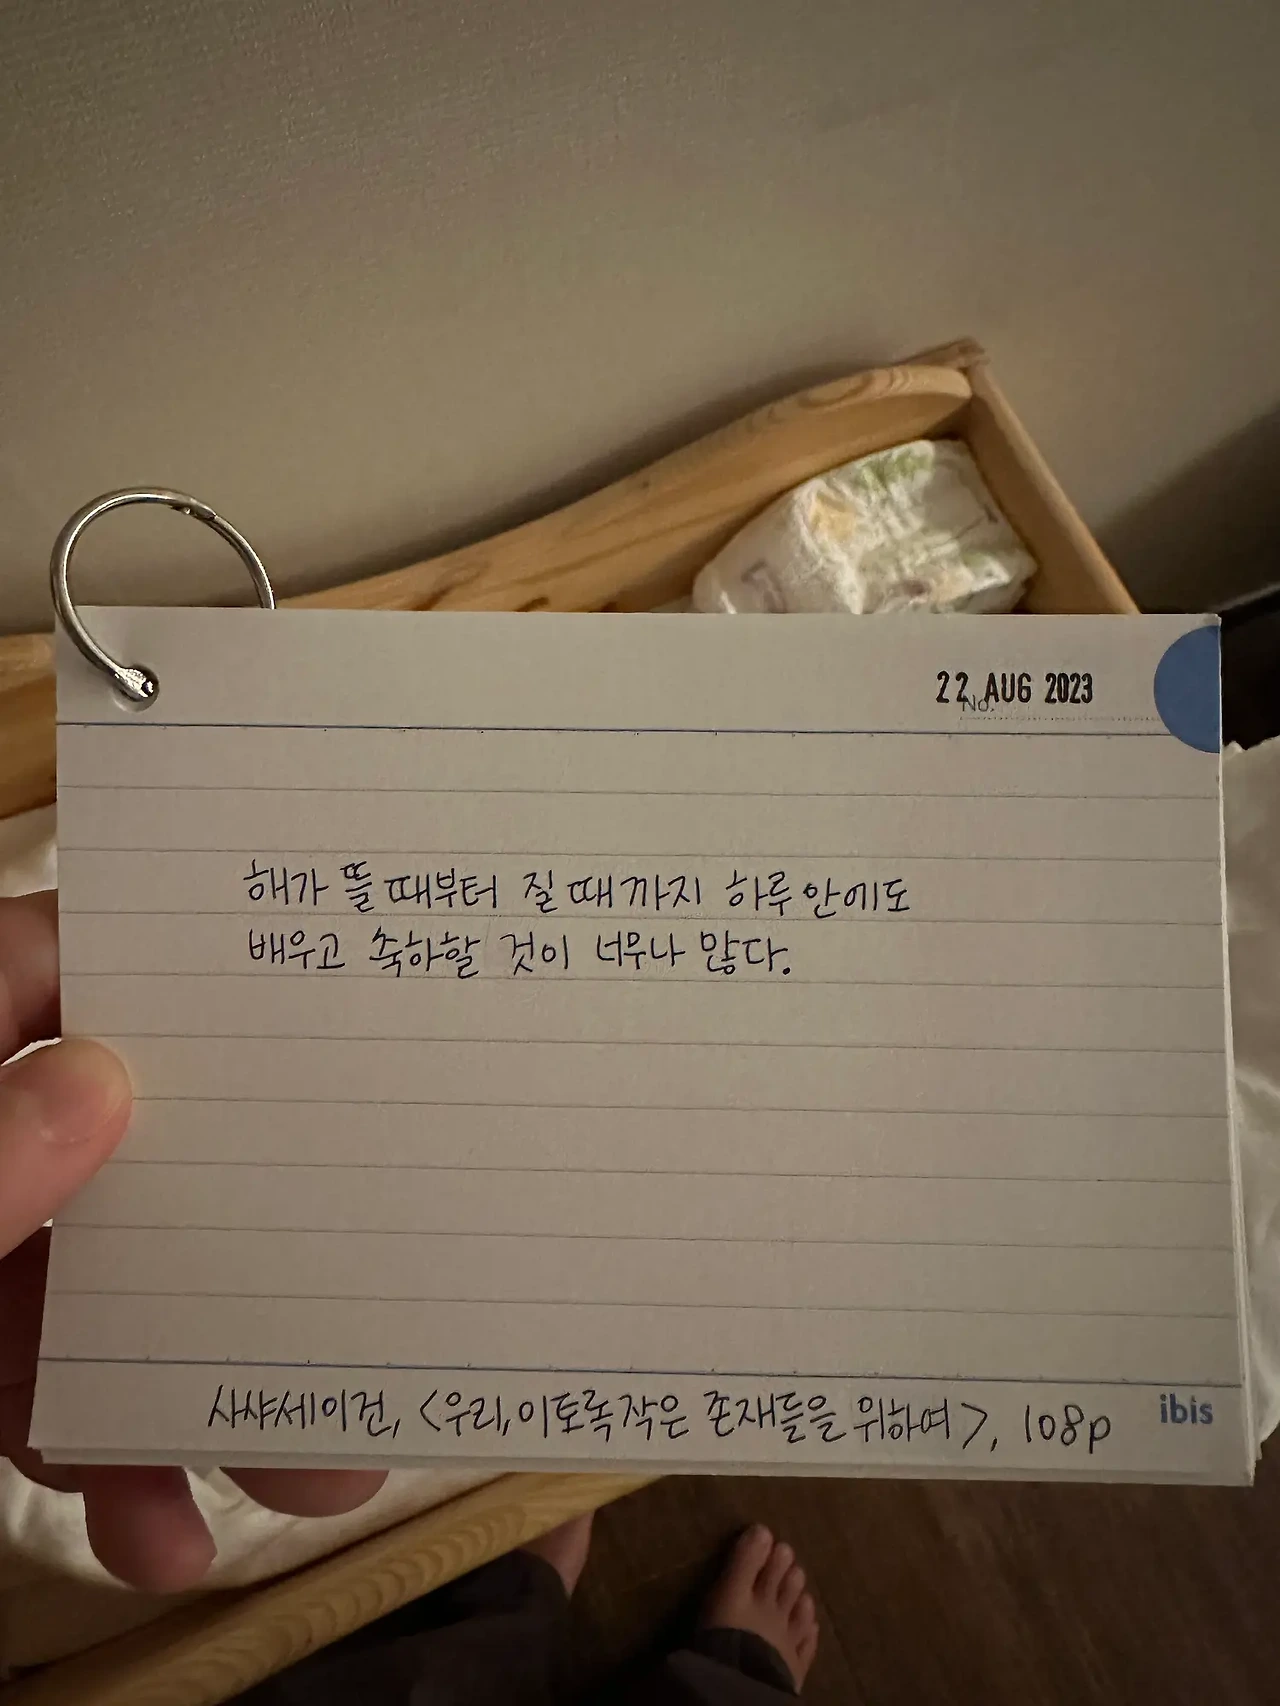 22 AUG 2023
No.
해가 뜰 때부터 질 때까지 하루 안에도
배우고 축하할 것이 너무나 많다.
사샤세이건, <우리,이토록작은 존재들을 위하여>, 108p
ibis